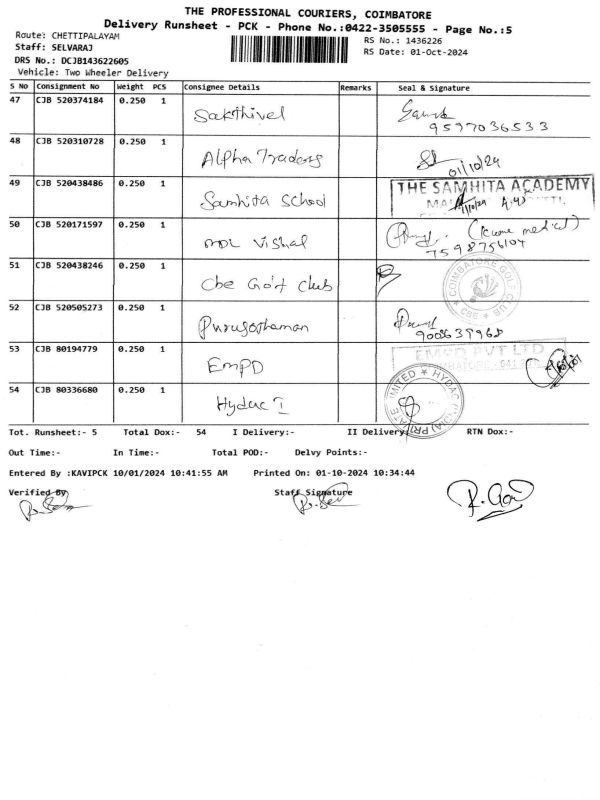 THE PROFESSIONAL COURIERS, COIMBATORE
Delivery Runsheet - PCK - Phone No.:0422-3505555 - Page No.:5
Route: CHETTIPALAYAM
RS No.: 1436226
Staff: SELVARAJ
RS Date: 01-Oct-2024
DRS No.: DCJB143622605
Vehicle: Two Wheeler Delivery
S No Consignment No Weight PCS Consignee Details Remarks Seal & Signature
47 CJB 520374184 0.250 1
Sakthivel
9597036533
48 CJB 520310728 0.250 1
Alpha Traders
01/10/24
49 CJB 520438486 0.250 1
THE SAMHITA ACADEMY
Samhita School
50 CJB 520171597 0.250 1
Vishal
7598756104
51 CJB 520438246 0.250 1
Cbe Golf Club
COIMBATORE GOLF CLUB
52 CJB 520505273 0.250 1
Purusothaman
9003639968
53 CJB 80194779 0.250 1
EMPD PVT LTD
EMPD
54 CJB 80336680 0.250 1
Hydac I
HYDAC (INDIA) PRIVATE LIMITED
Tot. Runsheet:- 5 Total Dox:- 54 I Delivery:- II Delivery:- RTN Dox:-
Out Time:- In Time:- Total POD:- Delvy Points:-
Entered By :KAVIPCK 10/01/2024 10:41:55 AM Printed On: 01-10-2024 10:34:44
Verified By Staff Signature